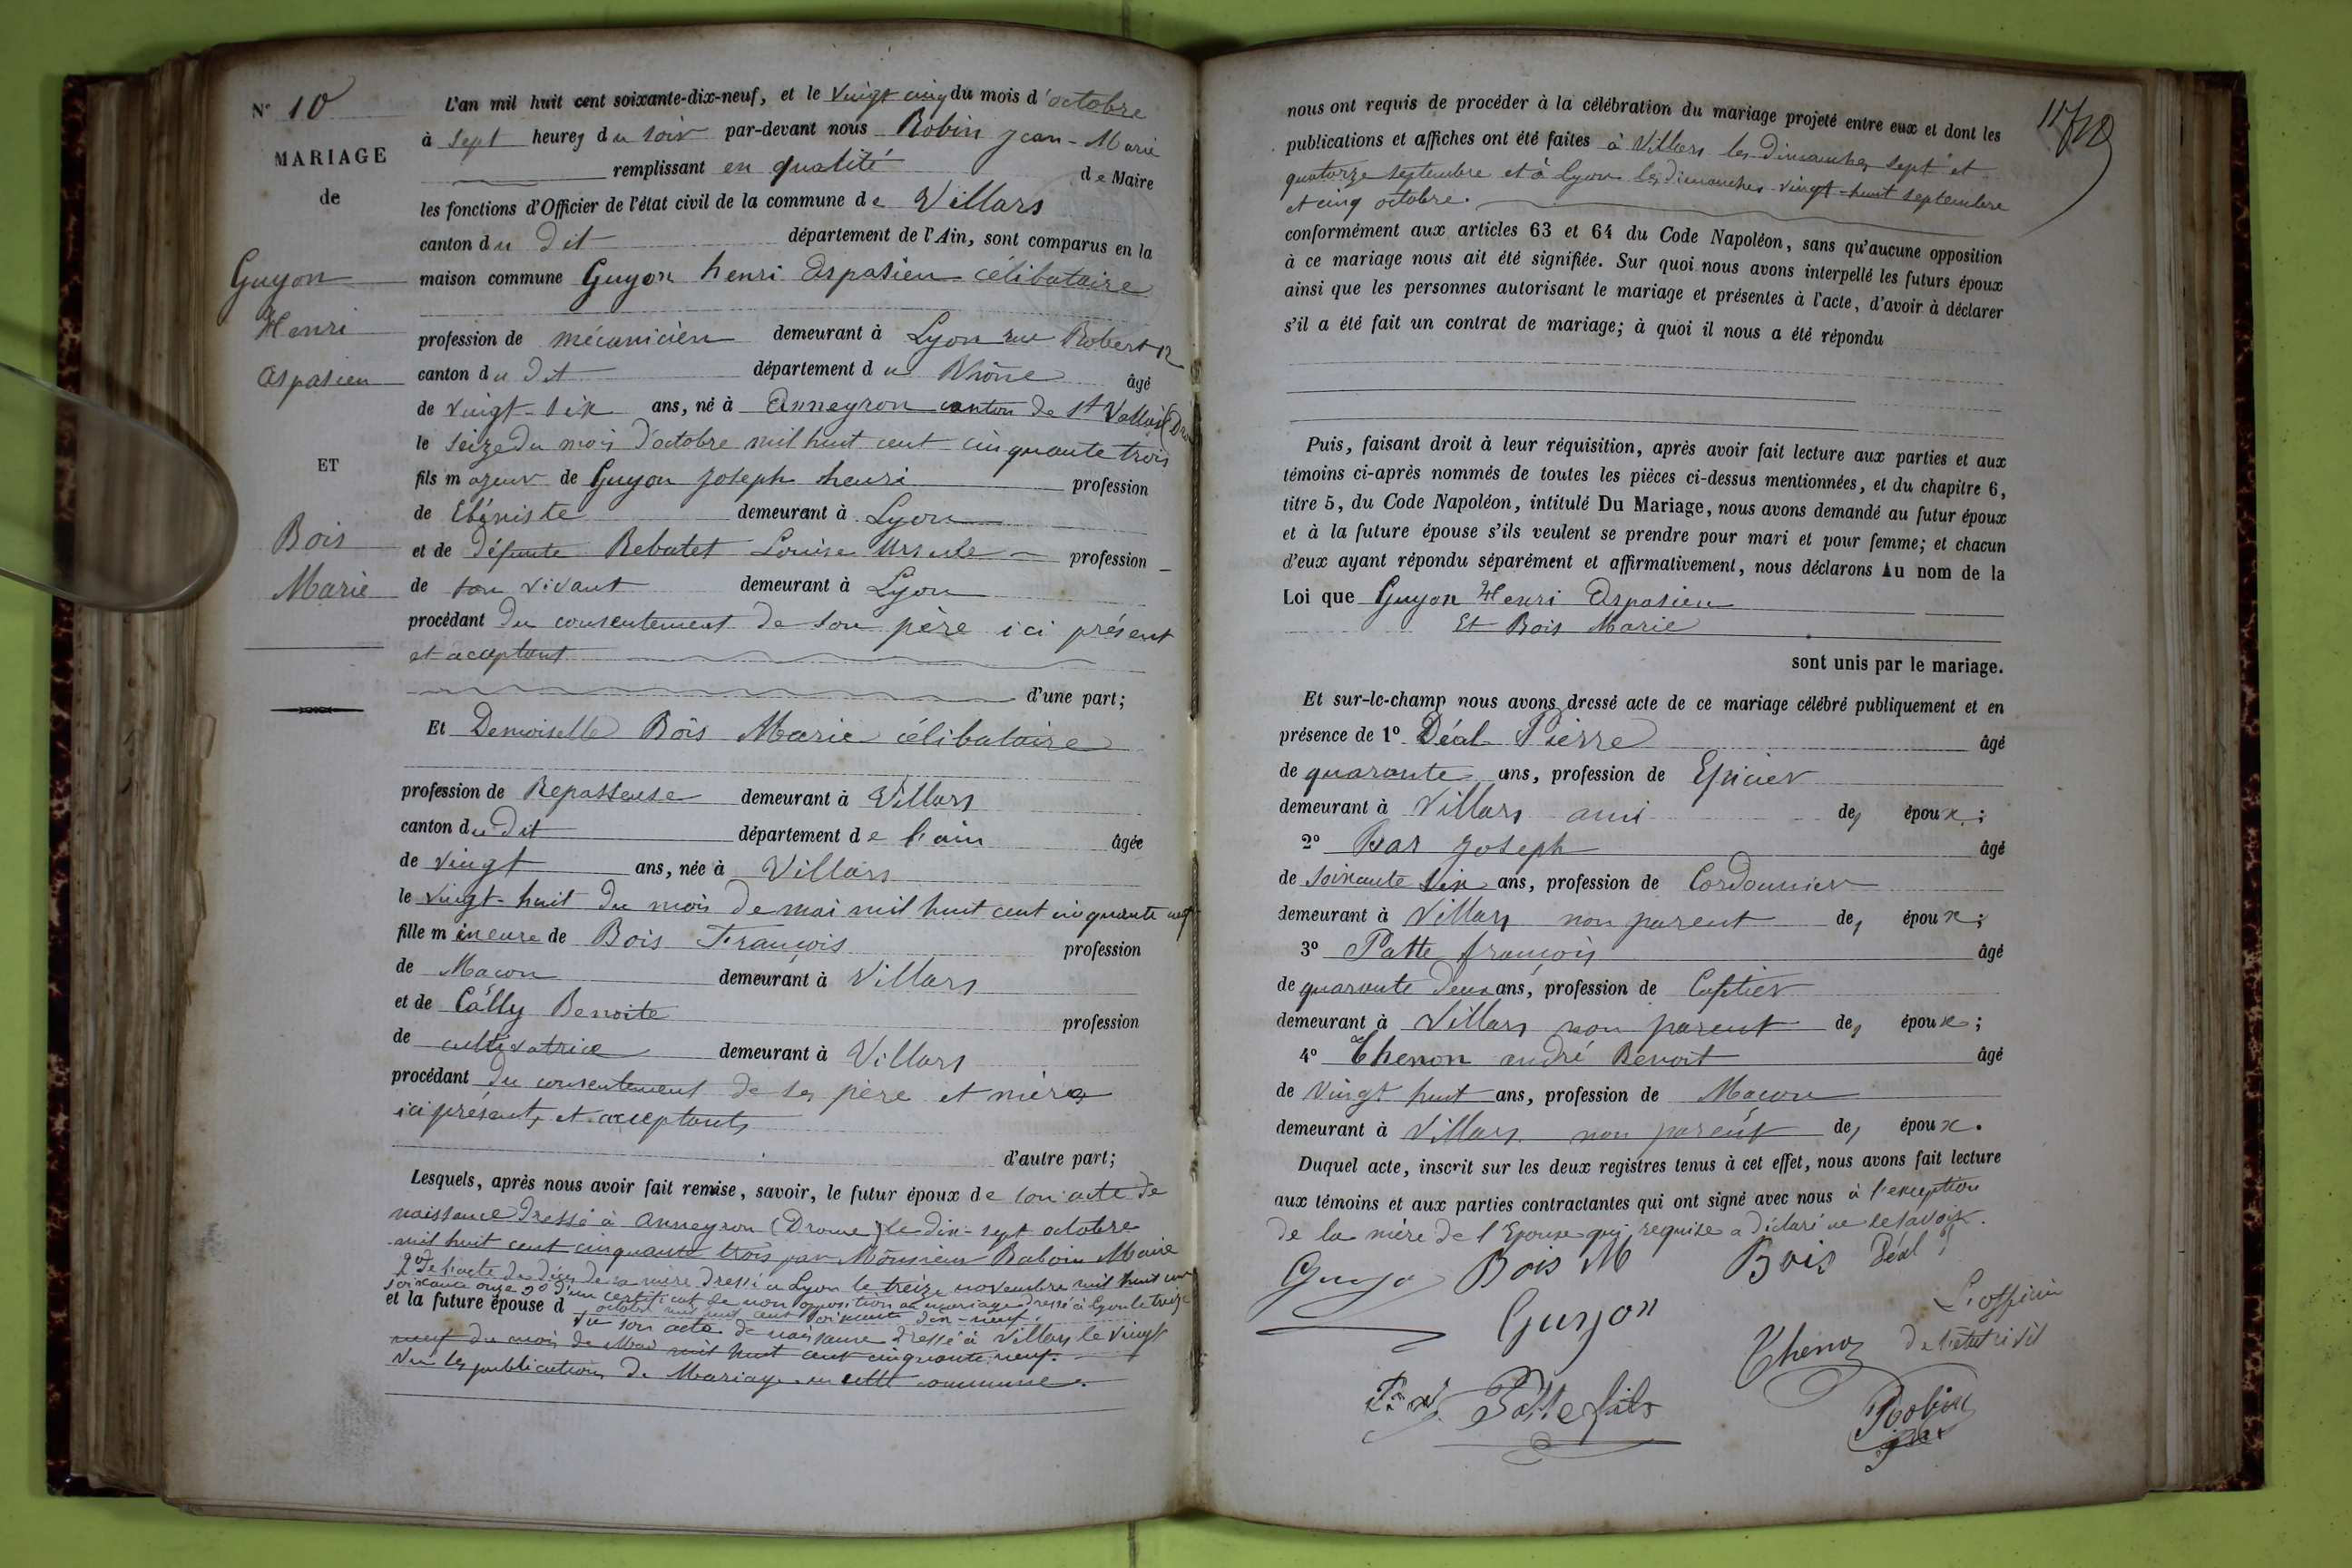 N° 10
MARIAGE
de
Guyon
Henri
Aspasien
ET
Bois
Marie
L'an mil huit cent soixante-dix-neuf, et le vingt cinq du mois d'octobre
à sept heures du soir par-devant nous Robin Jean-Marie
remplissant en qualité de Maire
les fonctions d'Officier de l'état civil de la commune de Villars
canton du dit département de l'Ain, sont comparus en la
maison commune Guyon henri Aspasien célibataire
profession de mécanicien demeurant à Lyon rue Robert 12
canton du dit département du Rhône âgé
de vingt-six ans, né à Anneyron canton de St Vallier
le seize du mois d'octobre mil huit cent cinquante trois
fils majeur de Guyon Joseph henri profession
de Ebéniste demeurant à Lyon
et de défunte Rebatet Louise Ursule profession
de son vivant demeurant à Lyon
procédant du consentement de son père ici présent
et acceptant
d'une part;
Et Demoiselle Bois Marie célibataire
profession de Repasseuse demeurant à Villars
canton du dit département de l'ain âgée
de vingt ans, née à Villars
le vingt-huit du mois de mai mil huit cent cinquante neuf
fille mineure de Bois François profession
de Maçon demeurant à Villars
et de Cally Benoite profession
de cultivatrice demeurant à Villars
procédant du consentement de ses père et mère
ici présents et acceptants
d'autre part;
Lesquels, après nous avoir fait remise, savoir, le futur époux de son acte de
naissance dressé à Anneyron (Drome) le dix-sept octobre
mil huit cent cinquante trois par Monsieur Baboin Maire
2° de l'acte de décès de sa mère dressé à Lyon le treize novembre mil huit cent
soixante onze 3° d'un certificat de non opposition au mariage dressé à Lyon le treize
octobre mil huit cent soixante dix-neuf.
et la future épouse d
vu son acte de naissance dressé à Villars le vingt
neuf du mois de Mai mil huit cent cinquante neuf.
Vu les publications de Mariage en cette commune.
nous ont requis de procéder à la célébration du mariage projeté entre eux et dont les
publications et affiches ont été faites à Villars les dimanches sept et
quatorze septembre et à Lyon les dimanches vingt-huit septembre
et cinq octobre.
conformément aux articles 63 et 64 du Code Napoléon, sans qu'aucune opposition
à ce mariage nous ait été signifiée. Sur quoi nous avons interpellé les futurs époux
ainsi que les personnes autorisant le mariage et présentes à l'acte, d'avoir à déclarer
s'il a été fait un contrat de mariage; à quoi il nous a été répondu
Puis, faisant droit à leur réquisition, après avoir fait lecture aux parties et aux
témoins ci-après nommés de toutes les pièces ci-dessus mentionnées, et du chapitre 6,
titre 5, du Code Napoléon, intitulé Du Mariage, nous avons demandé au futur époux
et à la future épouse s'ils veulent se prendre pour mari et pour femme; et chacun
d'eux ayant répondu séparément et affirmativement, nous déclarons Au nom de la
Loi que Guyon Henri Aspasien
Et Bois Marie
sont unis par le mariage.
Et sur-le-champ nous avons dressé acte de ce mariage célébré publiquement et en
présence de 1° Déal Pierre âgé
de quarante ans, profession de Epicier
demeurant à Villars ami des époux;
2° Bar Joseph âgé
de soixante six ans, profession de Cordonnier
demeurant à Villars non parent des époux;
3° Patte françois âgé
de quarante deux ans, profession de Caftier
demeurant à Villars non parent des époux;
4° Thenon andré Benoit âgé
de vingt huit ans, profession de Maçon
demeurant à Villars non parent des époux.
Duquel acte, inscrit sur les deux registres tenus à cet effet, nous avons fait lecture
aux témoins et aux parties contractantes qui ont signé avec nous à l'exception
de la mère de l'Epouse qui requise a déclaré ne le savoir.
Bois M Bois Déal
Guyon
L'officier
de l'état civil
Thenon
Patte fils
Robin